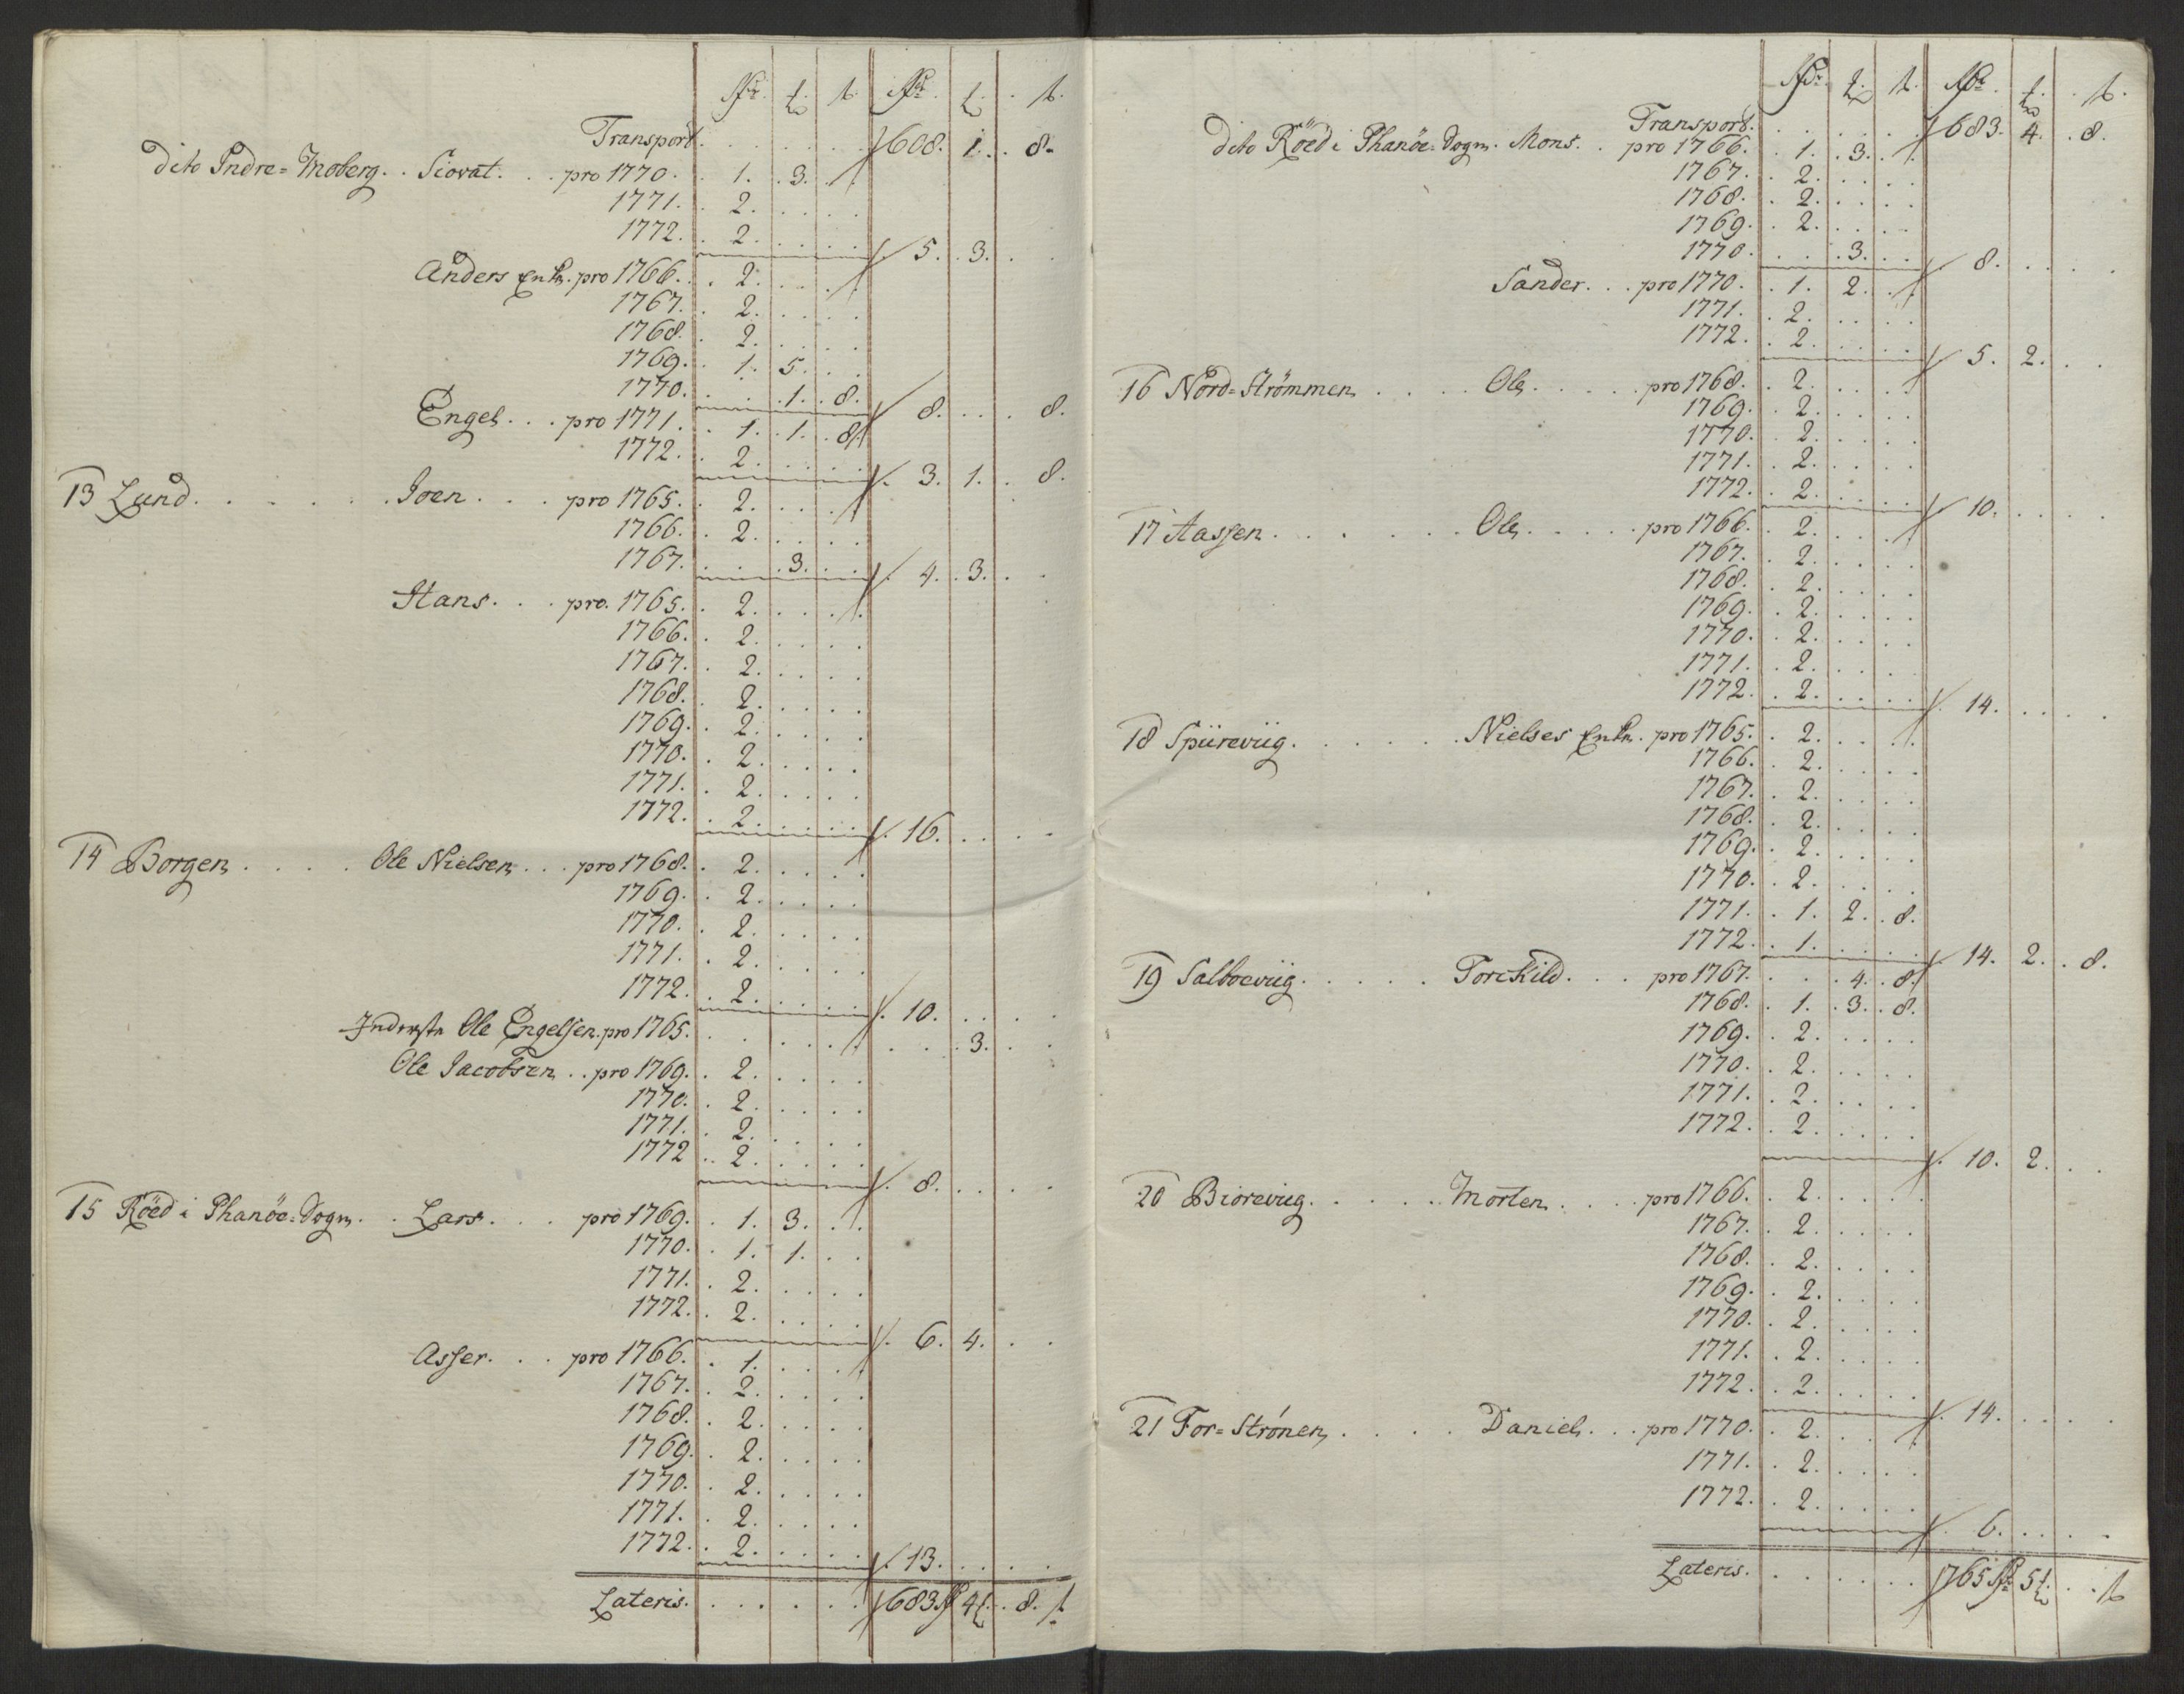 Transport. 608. 1. 8.
dito Indre=Moberg. Siovat. pro 1770. 1. 3.
1771. 2.
1772. 2. 5. 3.
Anders Enk. pro 1766. 2.
1767. 2.
1768. 2.
1769. 1. 5.
1770. 1. 8. 8. 8.
Engel. pro 1771. 1. 1. 8.
1772. 2. 3. 1. 8.
13 Lund. Joen. pro 1765. 2.
1766. 2.
1767. 3. 4. 3.
Hans. pro. 1765. 2.
1766. 2.
1767. 2.
1768. 2.
1769. 2.
1770. 2.
1771. 2.
1772. 2. 16.
14 Borgen. Ole Nielsen. pro 1768. 2.
1769. 2.
1770. 2.
1771. 2.
1772. 2. 10.
Inderste Ole Engelsen. pro 1765. 3.
Ole Jacobsen. pro 1769. 2.
1770. 2.
1771. 2.
1772 2. 8.
15 Röed i Phanöe=Sogn. Lars. pro 1769. 1. 3.
1770. 1. 1.
1771. 2.
1772. 2. 6. 4.
Asser. pro 1766. 1.
1767. 2.
1768. 2.
1769. 2.
1770. 2.
1771. 2.
1772. 2. 13.
Lateris. 683 4 8.
Transport. 683. 4. 8.
dito Röed i Phanöe=Sogn. Mons. pro 1766. 1. 3.
1767. 2.
1768. 2.
1769. 2.
1770. 3. 8.
Sander. pro 1770. 1. 2.
1771. 2.
1772. 2. 5. 2.
16 Nord=Strömmen Ole. pro 1768. 2.
1769. 2.
1770. 2.
1771. 2.
1772. 2. 10.
17 Aassen. Ole. pro 1766. 2.
1767. 2.
1768. 2.
1769. 2.
1770. 2.
1771. 2.
1772. 2. 14.
18 Spireviig. Nielses Enk. pro 1765. 2.
1766. 2.
1767. 2.
1768. 2.
1769. 2.
1770. 2.
1771. 1. 2. 8.
1772. 1. 14. 2. 8.
19 Salboeviig. Torckild. pro 1767. 4. 8.
1768. 1. 3. 8.
1769. 2.
1770. 2.
1771. 2.
1772. 2. 10. 2.
20 Bioreviig. Morten. pro 1766. 2.
1767. 2.
1768. 2.
1769. 2.
1770. 2.
1771. 2.
1772. 2. 14.
21 For=Strönen, Daniel. pro 1770. 2.
1771. 2.
1772. 2. 6.
Lateris. 765 5